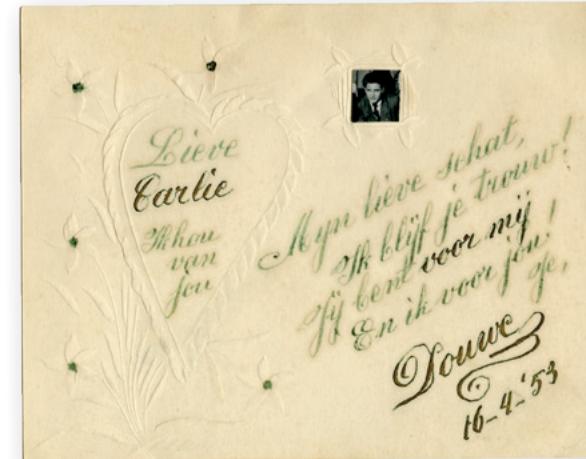 Lieve
Carlie
Ik hou
van
jou
Myn lieve schat,
Ik blijf je trouw!
Jij bent voor mij
En ik voor jou!
je,
Douwe
16-4-'53